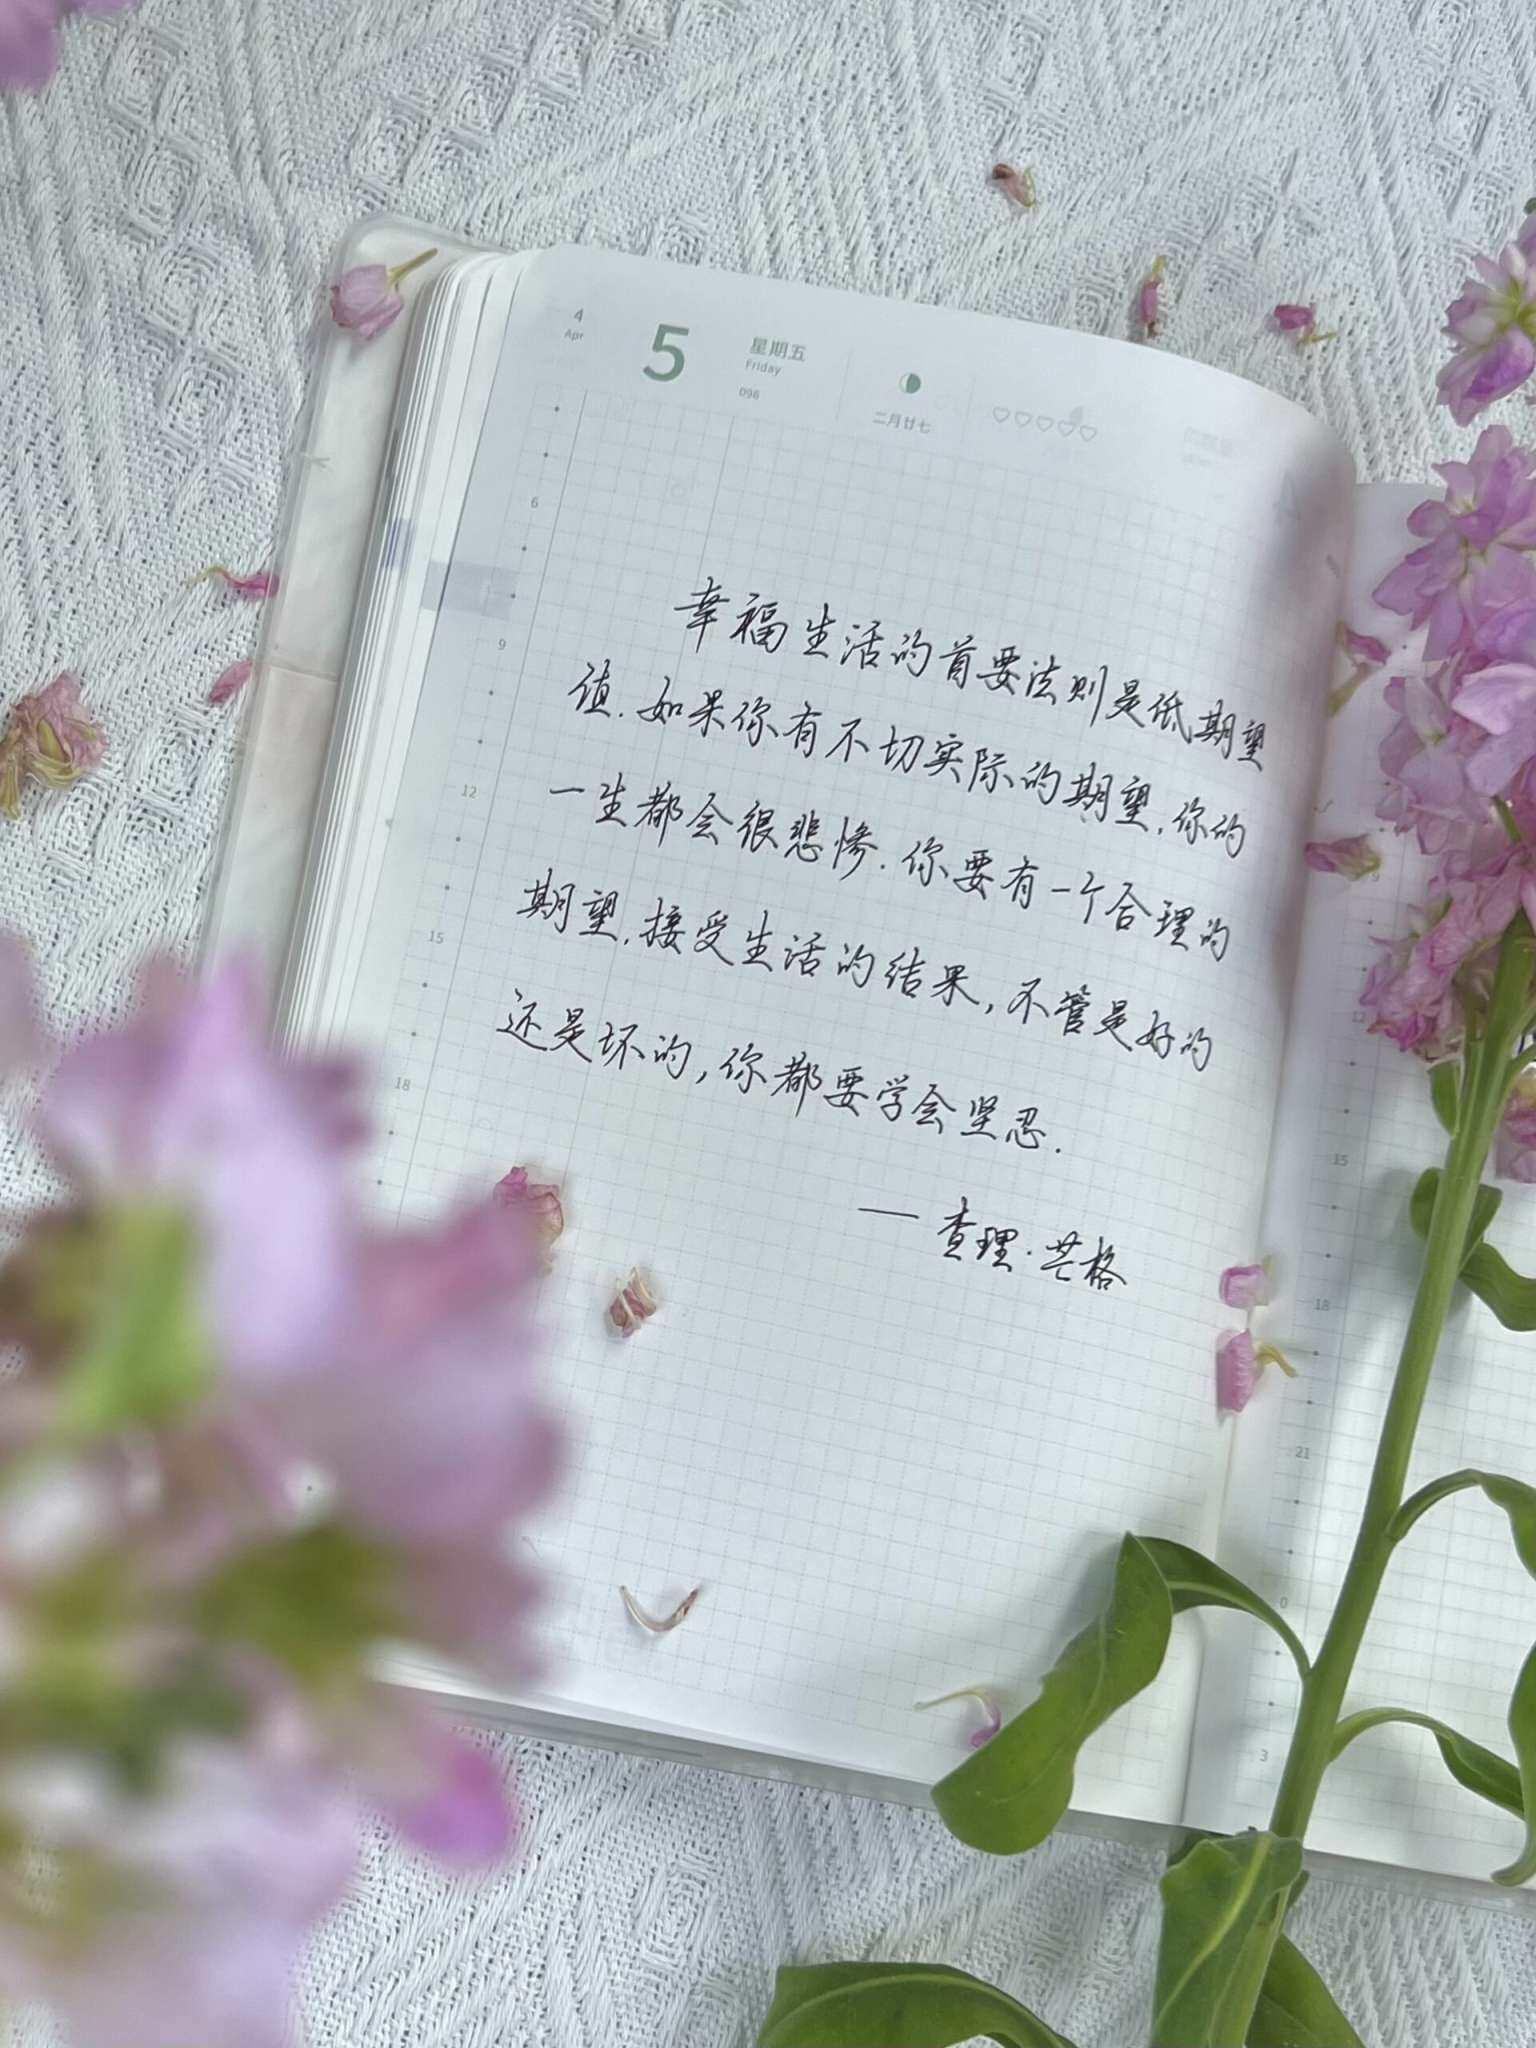 4
Apr
5
星期五
Friday
096
二月廿七
6
9
12
15
18
幸福生活的首要法则是低期望
值.如果你有不切实际的期望,你的
一生都会很悲惨.你要有一个合理的
期望,接受生活的结果,不管是好的
还是坏的,你都要学会坚忍.
——查理·芒格
12
15
18
21
0
3